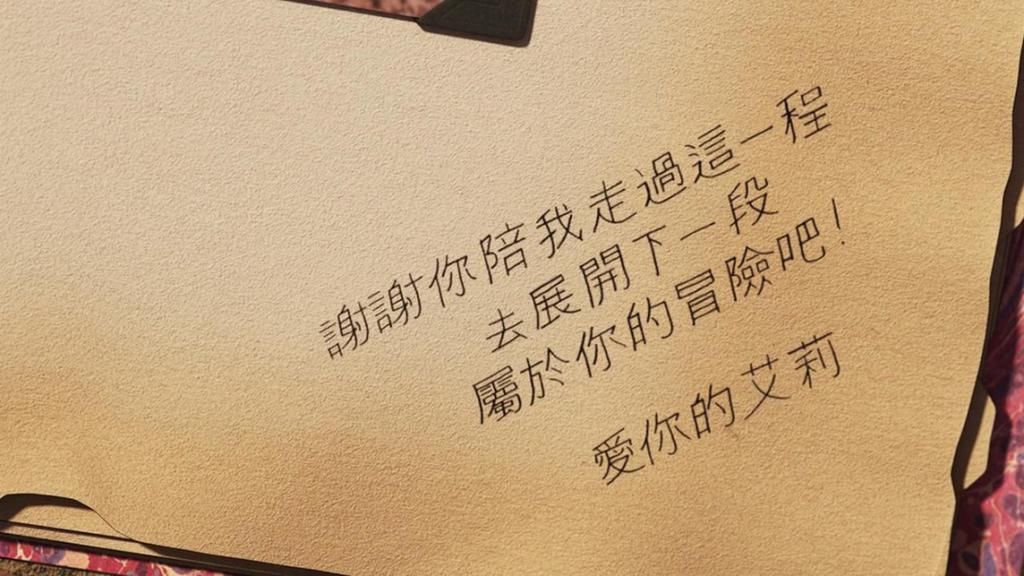 謝謝你陪我走過這一程
去展開下一段
屬於你的冒險吧!
愛你的艾莉